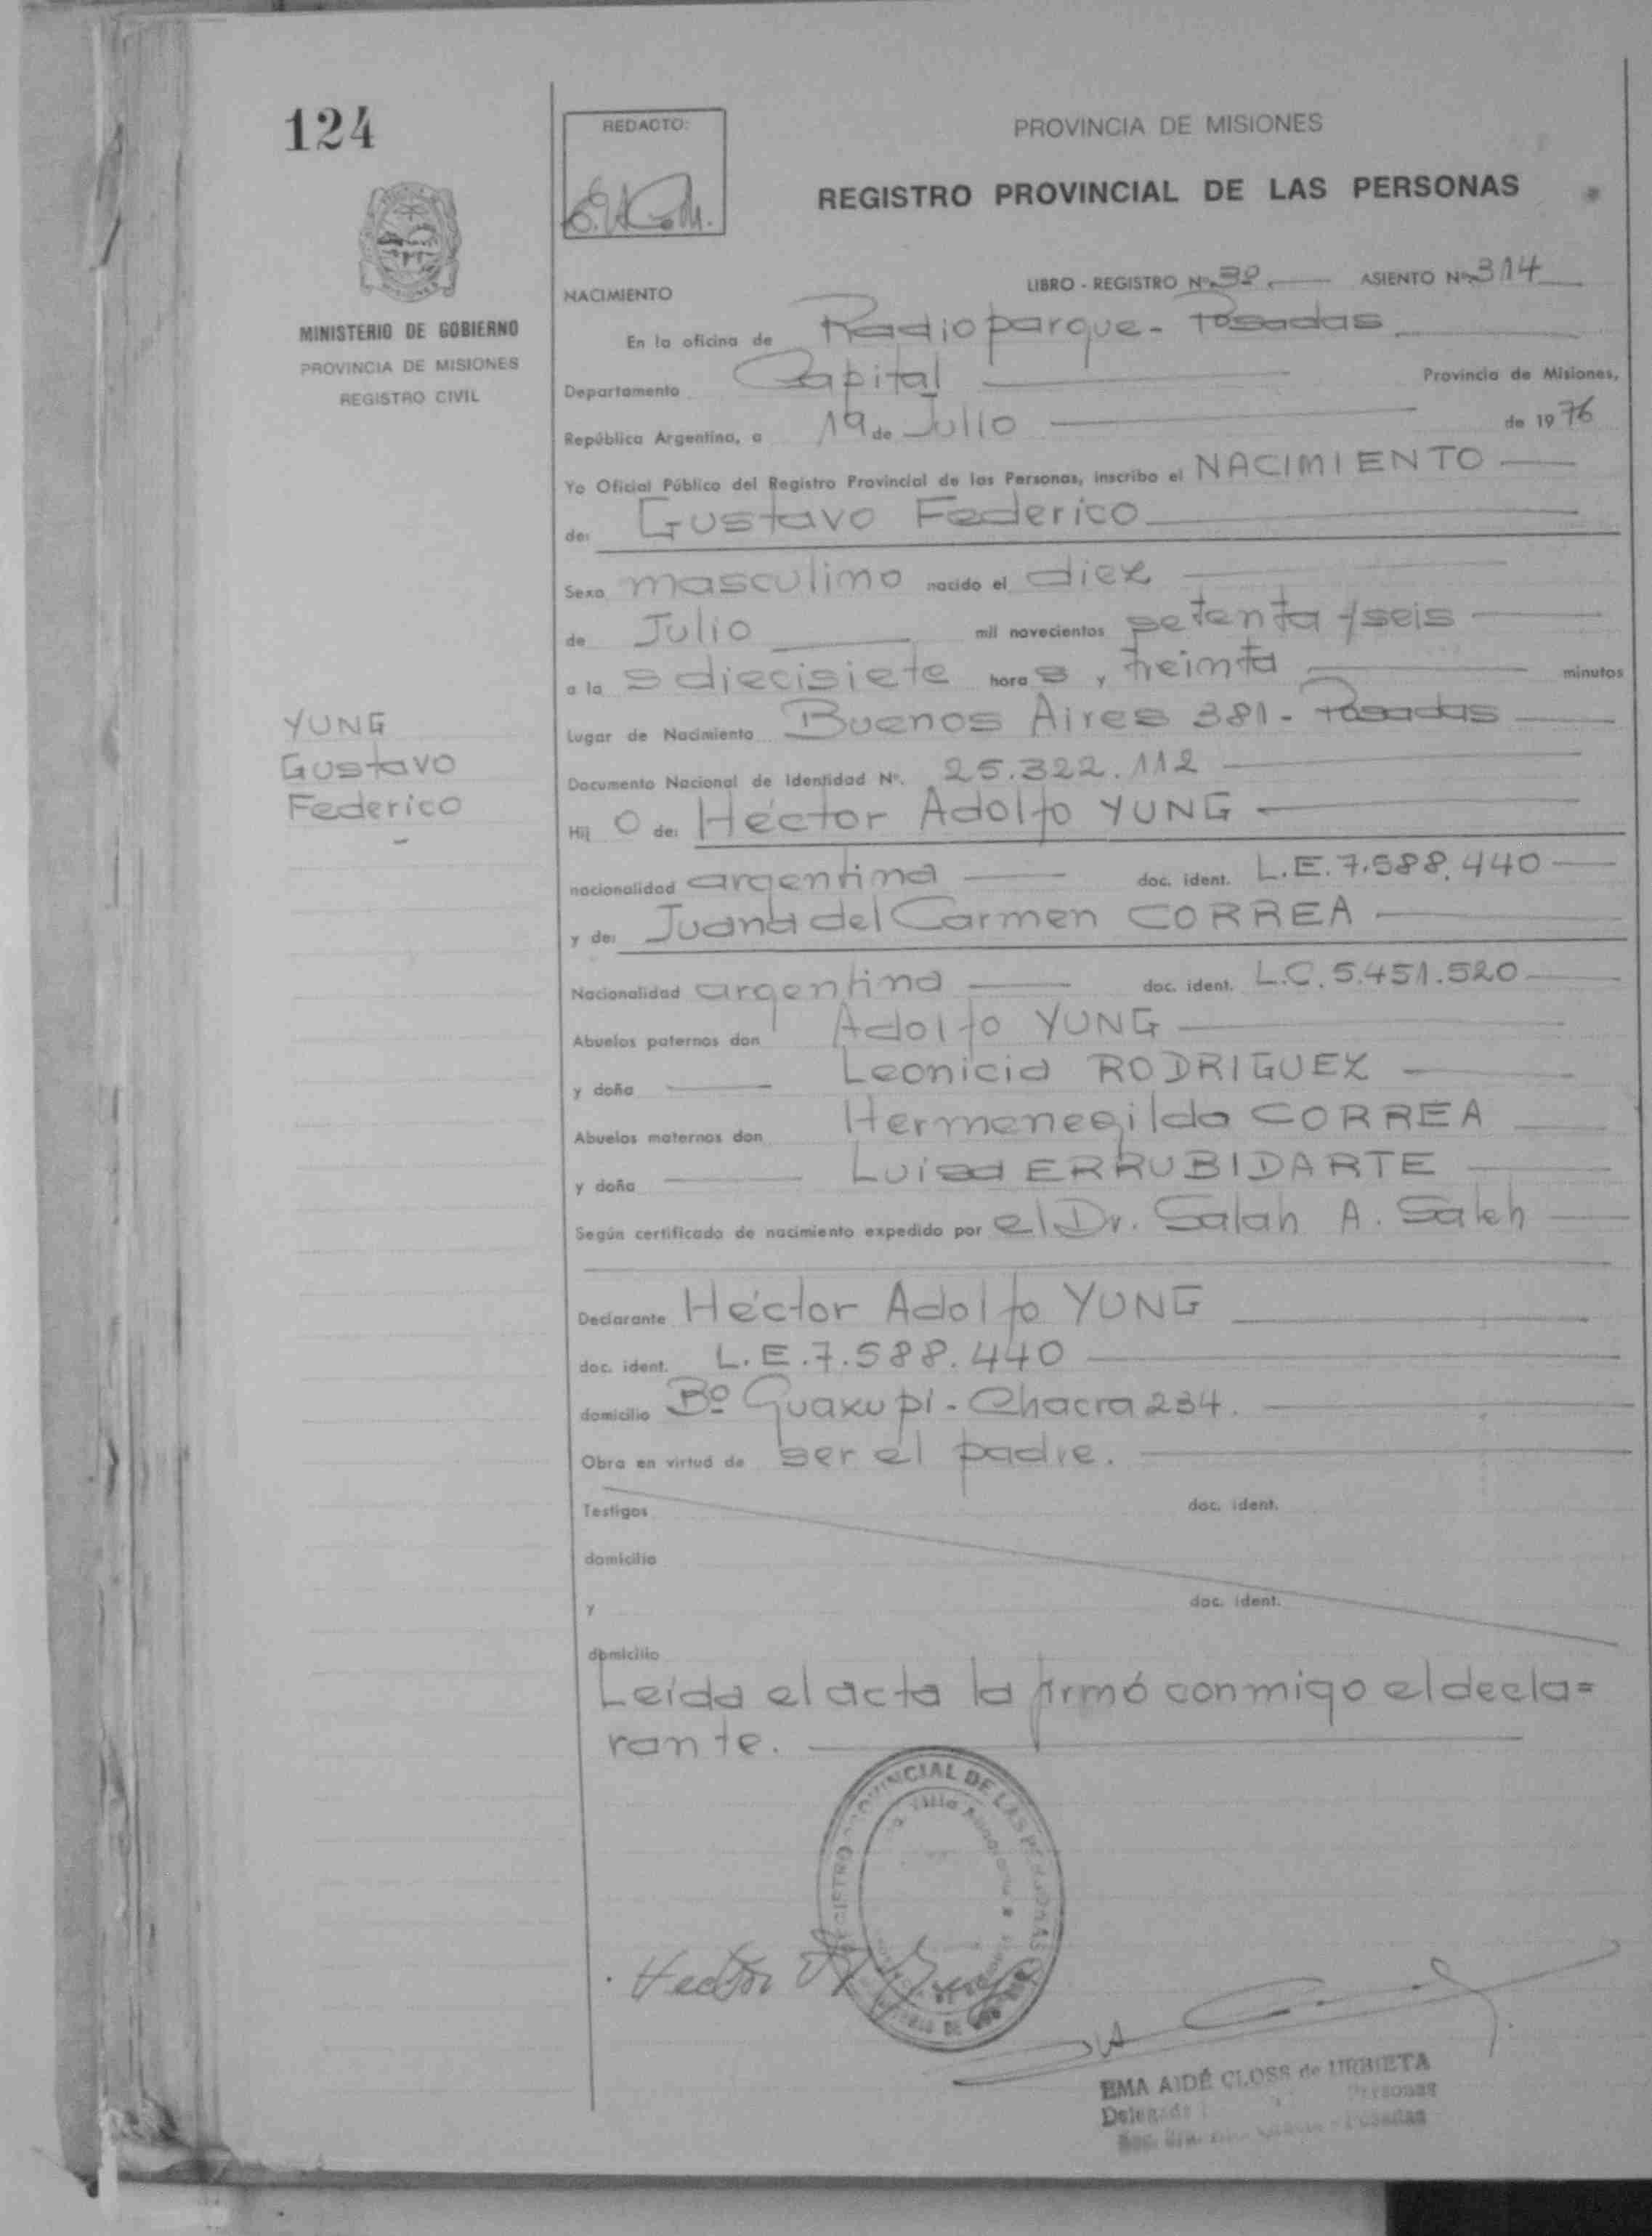 124
REDACTO:
PROVINCIA DE MISIONES
REGISTRO PROVINCIAL DE LAS PERSONAS
MINISTERIO DE GOBIERNO
PROVINCIA DE MISIONES
REGISTRO CIVIL
LIBRO - REGISTRO Nº 3º ASIENTO Nº 314
NACIMIENTO
En la oficina de Radioparque - Posadas
Departamento Capital Provincia de Misiones,
República Argentina, a 19 de Julio de 1976
Yo Oficial Público del Registro Provincial de las Personas, inscribo el NACIMIENTO
de: Gustavo Federico
Sexo masculino nacido el diez
de Julio mil novecientos setenta y seis
a la s diecisiete hora s y treinta minutos
Lugar de Nacimiento Buenos Aires 381 - Posadas
YUNG
Gustavo
Federico
Documento Nacional de Identidad Nº. 25.322.112
Hij o de: Héctor Adolfo YUNG
nacionalidad argentina doc. ident. L.E. 7.588.440
y de: Juana del Carmen CORREA
Nacionalidad argentina doc. ident. L.C. 5.451.520
Abuelos paternos don Adolfo YUNG
y doña Leonicia RODRIGUEZ
Abuelos maternos don Hermenegildo CORREA
y doña Luisa ERRUBIDARTE
Según certificado de nacimiento expedido por el Dr. Salah A. Saleh
Declarante Héctor Adolfo YUNG
doc. ident. L.E. 7.588.440
domicilio Bº Guaxupi - Chacra 234.
Obra en virtud de ser el padre.
Testigos doc. ident.
domicilio
y doc. ident.
domicilio
Leída el acta la firmó conmigo el decla=
rante.
REGISTRO PROVINCIAL DE LAS PERSONAS
Villa
Hector
EMA AIDÉ CLOSS de URBIETA
Delegada Personas
Posadas